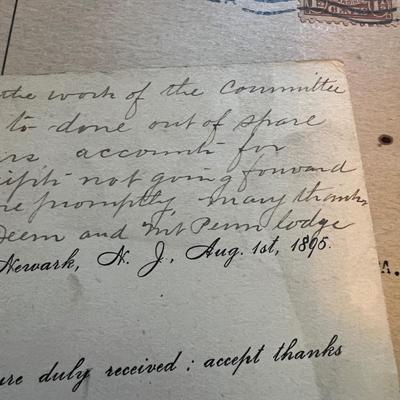 the work of the Committee
to done out of spare
accounts for
not going forward
promptly, many thanks,
Deem and Mt Penn lodge
Newark, N. J., Aug. 1st, 1895.
A.
duly received; accept thanks